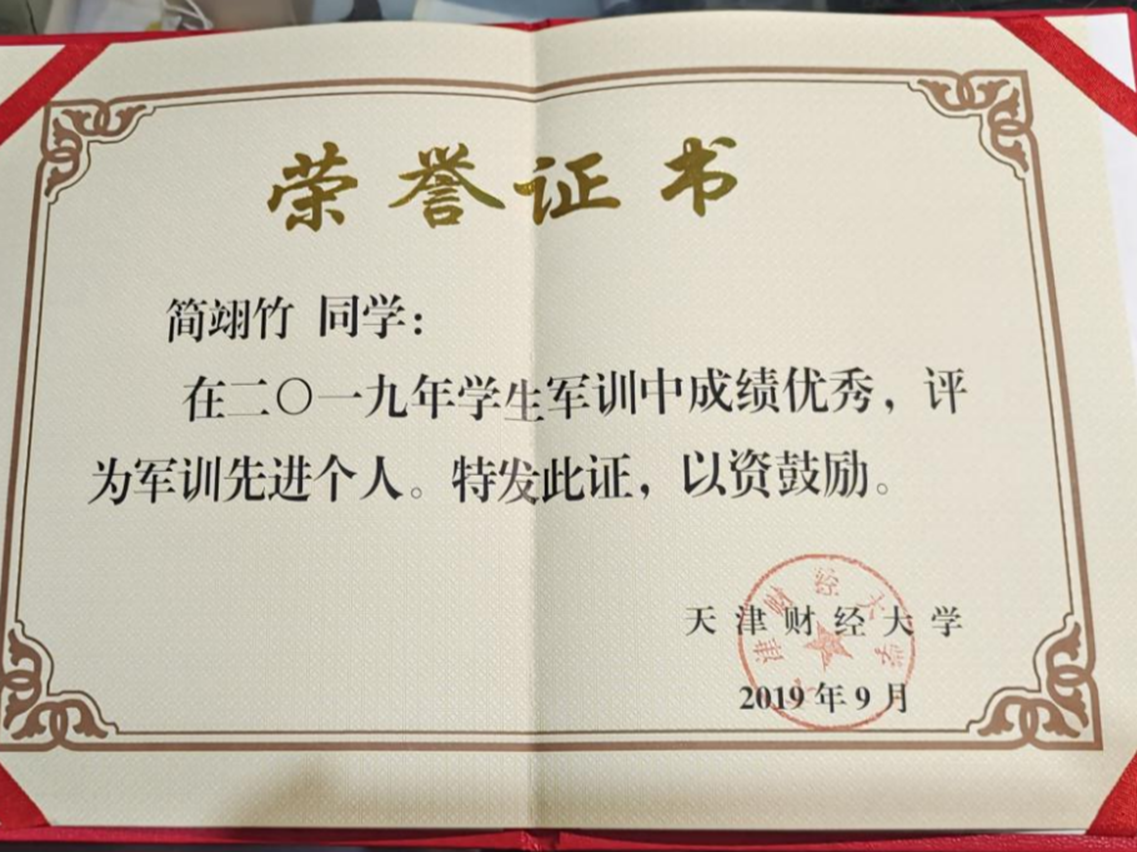 荣誉证书
简翊竹 同学：
在二〇一九年学生军训中成绩优秀，评
为军训先进个人。特发此证，以资鼓励。
天津财经大学
2019年9月
津财经大学